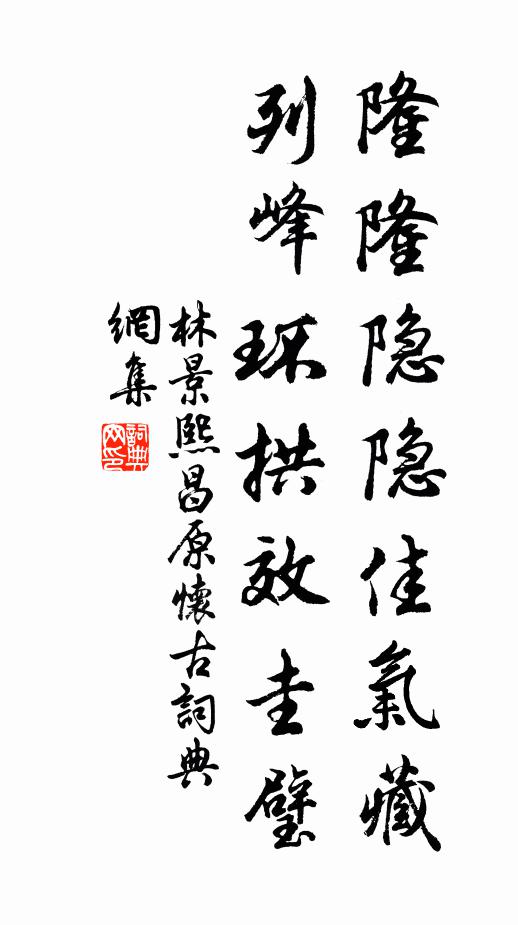 隆隆隐隐佳氣藏
列峰环拱效圭璧
林景熙昌原懷古詞典
網集
詞典网印